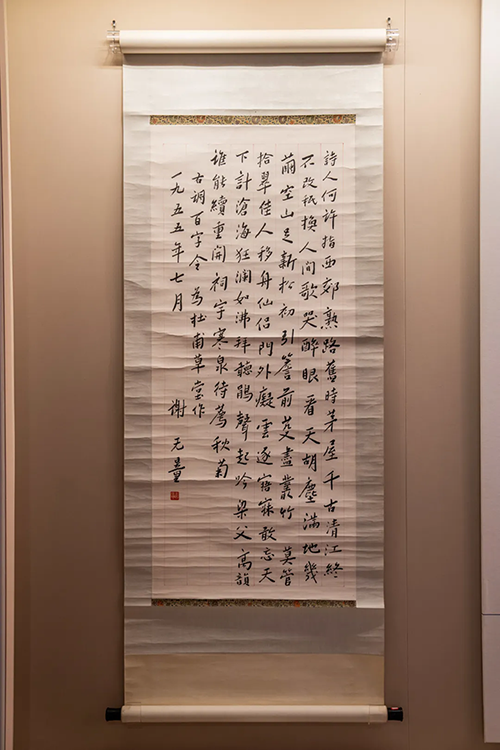 詩人何許指西郊熟路舊時茅屋千古清江終
不改祇換人間歌哭醉眼看天胡塵滿地幾
繭空山足新松初引簷前芟盡叢竹莫管
拾翠佳人移舟仙侶門外癡雲逐寤寐敢忘天
下計滄海狂瀾如沸拜聽鵑聲起吟梁父高韻
誰能續重開祠宇寒泉待薦秋菊
古調百字令 為杜甫草堂作
一九五五年七月 謝无量